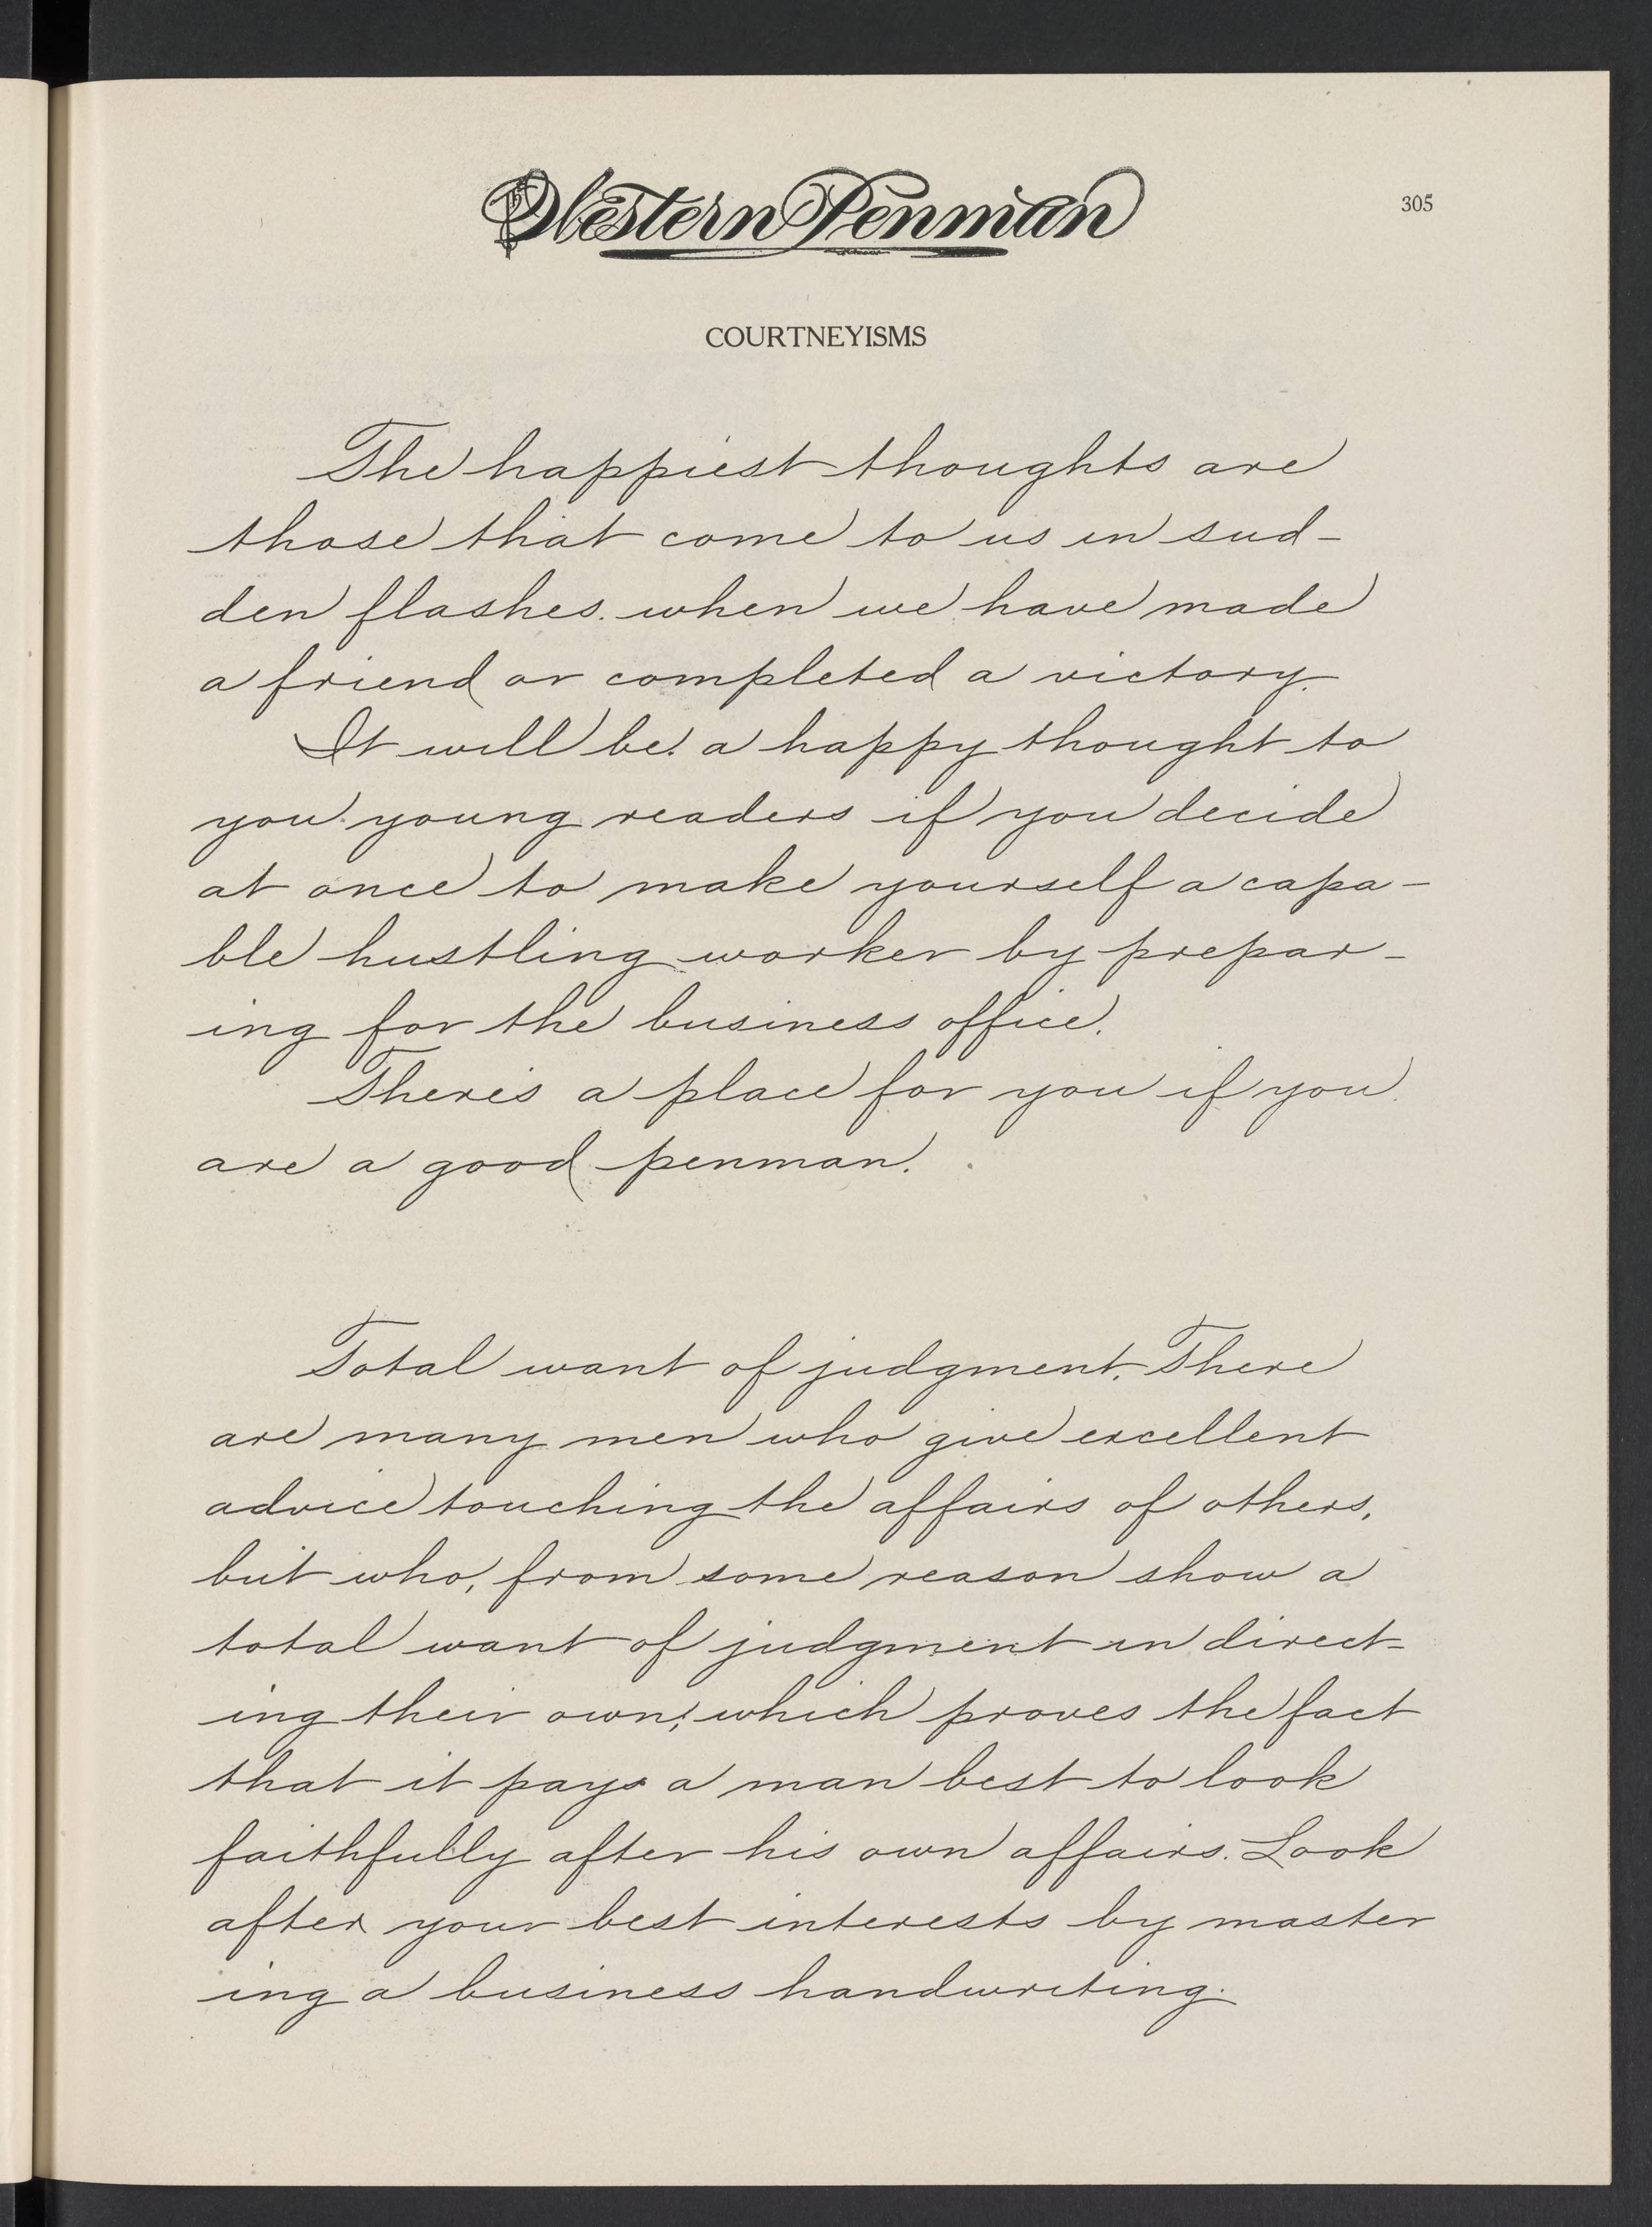 Western Penman
305
COURTNEYISMS
The happiest thoughts are
those that come to us in sud-
den flashes. when we have made
a friend or completed a victory.
It will be a happy thought to
you young readers if you decide
at once to make yourself a capa-
ble hustling worker by prepar-
ing for the business office.
There's a place for you if you
are a good penman.
Total want of judgment. There
are many men who give excellent
advice touching the affairs of others,
but who, from some reason show a
total want of judgment in direct-
ing their own; which proves the fact
that it pays a man best to look
faithfully after his own affairs. Look
after your best interests by master
ing a business handwriting.